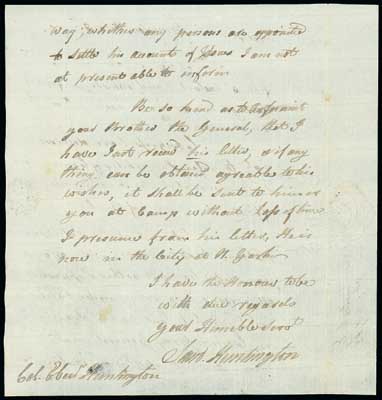 way; whether any persons are appointed
to settle his account of Loss I am not
at present able to inform
Be so kind as to Inform
your Brother the General, that I
have Just recvd his letter, & if any
thing can be obtained agreable to his
wishes, it shall be sent to him or
you at Camp without loss of time
I presume from his letter, He is
now in the City of N. York
I have the Honour to be
with due regards
your Humble Servt
Saml. Huntington
Col. Eben Huntington